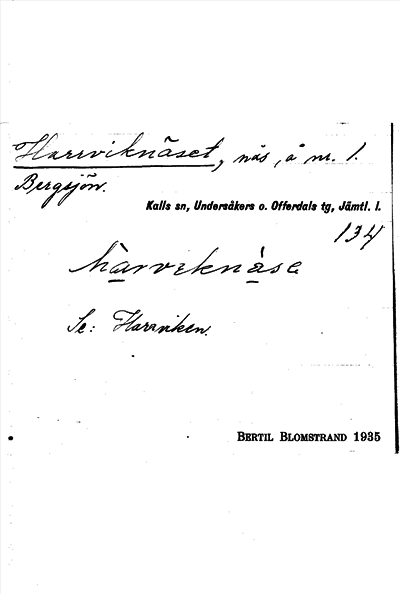 Harrviknäset, näs, å nr. 1.
Bergsjön.
Kalls sn, Undersåkers o. Offerdals tg, Jämtl. l.
134
hàrveknȧ̀sɛ
Se: Harrviken.
BERTIL BLOMSTRAND 1935